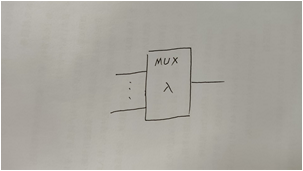 MUX
λ